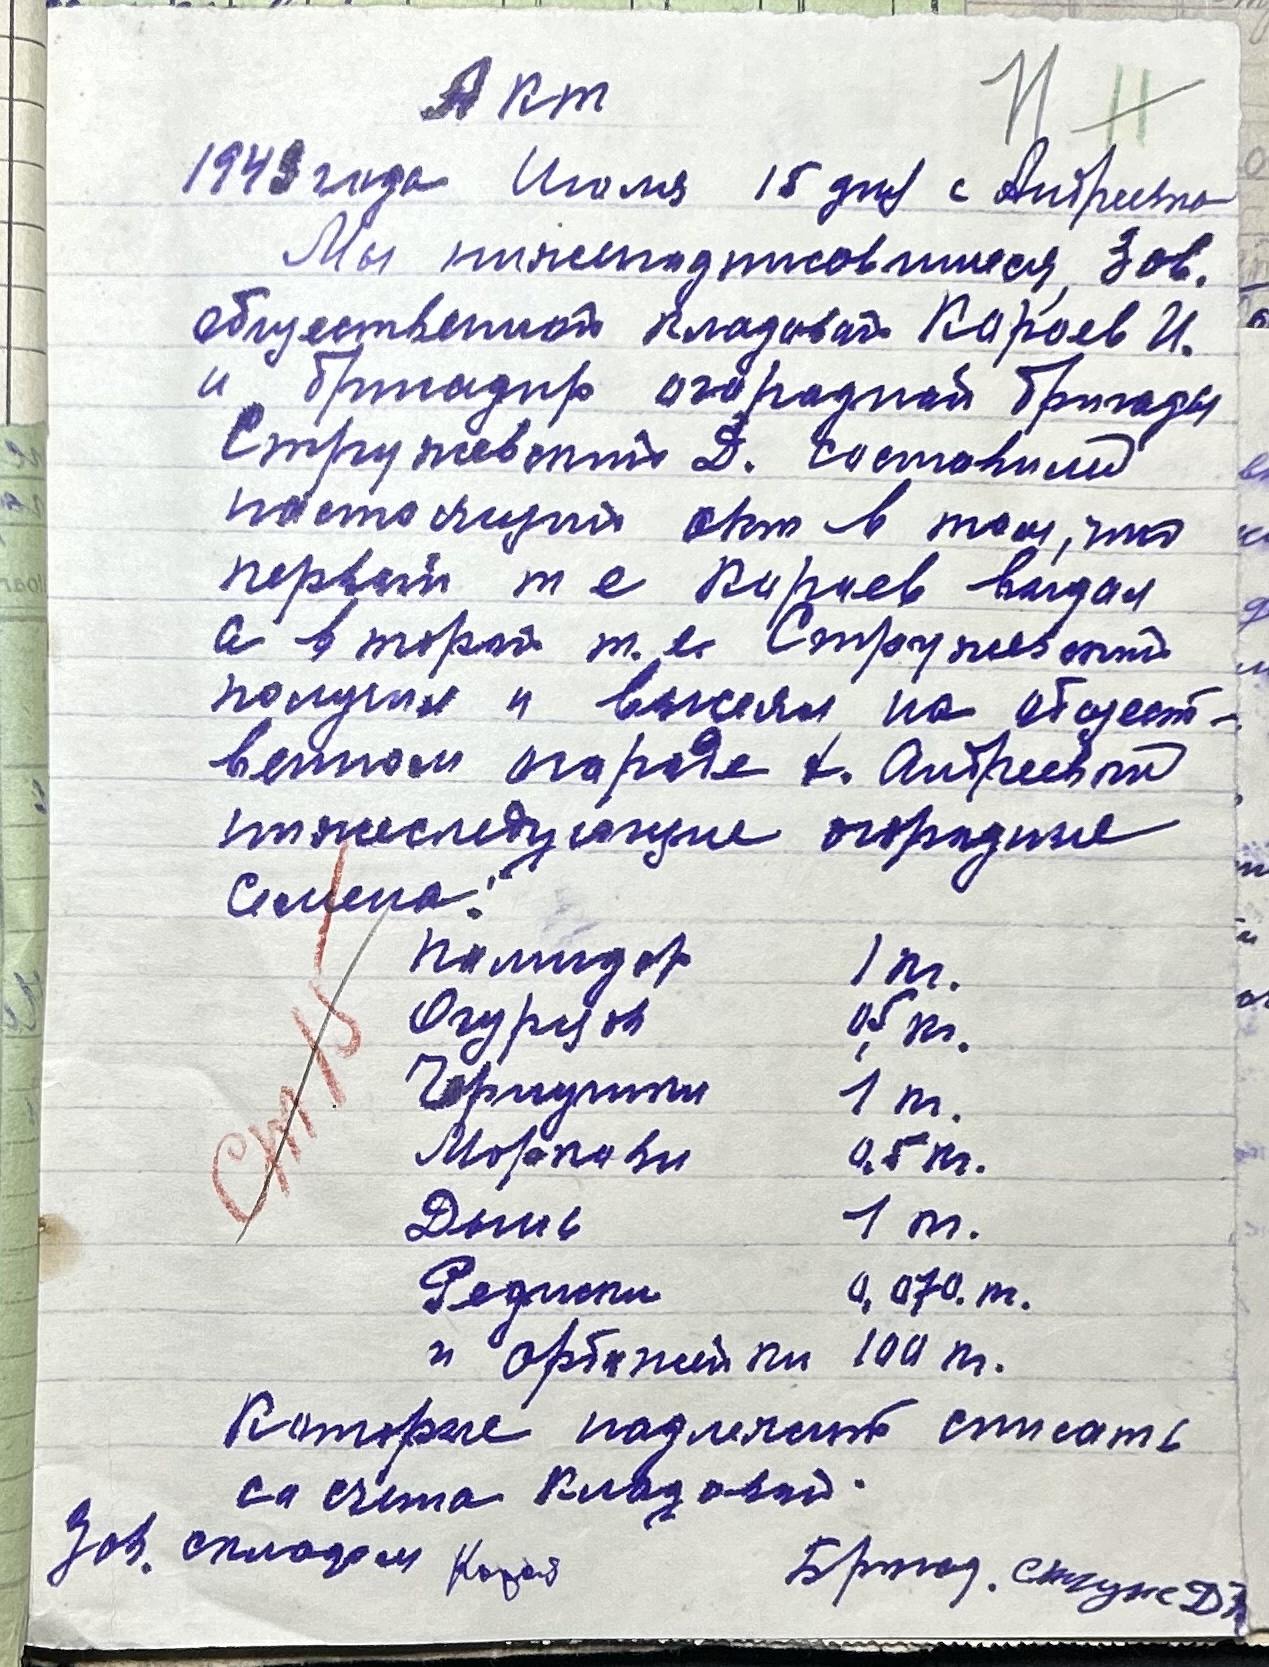 Акт
11
1943 года Июля 15 дня с Андреевка
Мы нижеподписовшиеся, Зов.
общественной кладовой Караев И.
и бригадир огородной бригады
Стружевский Д. составили
настоящий акт в том, что
первый т е Караев выдал
а второй т. е. Стружевский
получил и высеял на общест-
венном огороде к. Андреевки
нижеследующие огородные
семена:
Помидор 1 кг.
Огурцов 0,5 кг.
Чернушки 1 кг.
Моркови 0,5 кг.
Дынь 1 кг.
Редиски 0,070. кг.
и орбажейки 100 кг.
Которые надлежит списать
са счета кладовой.
Зов. складом
Бригад.
Ст 15